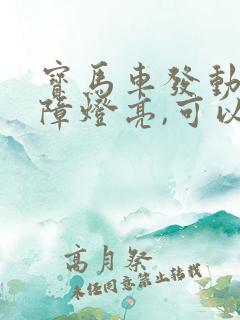 寶馬車發動
障燈亮,可以
高月祭
未經同意禁止轉載